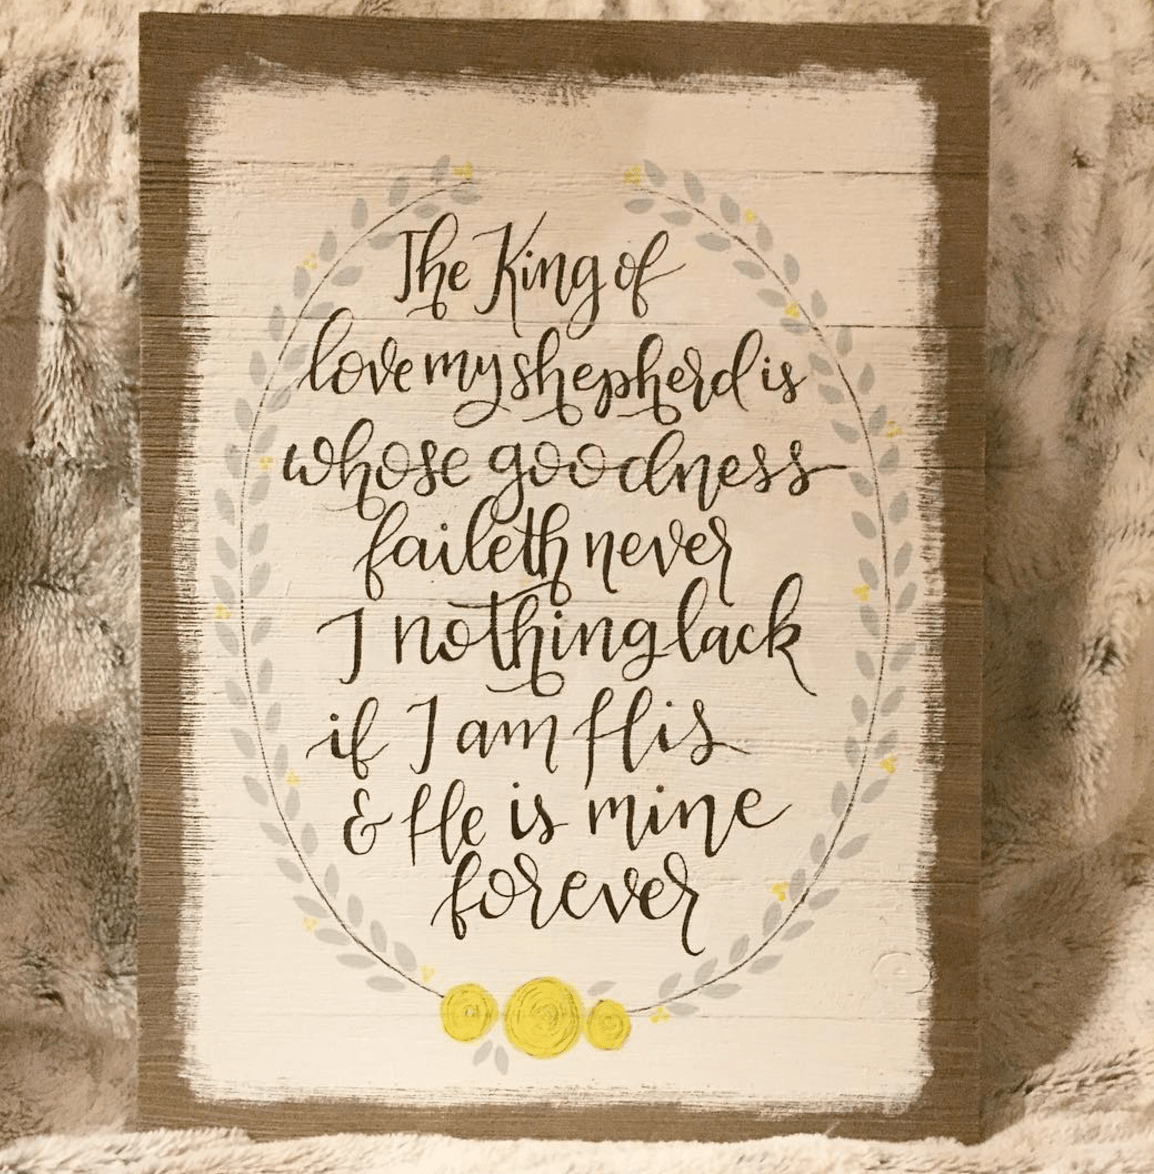 The King of
love my shepherd is
whose goodness
faileth never
I nothing lack
if I am His
& He is mine
forever